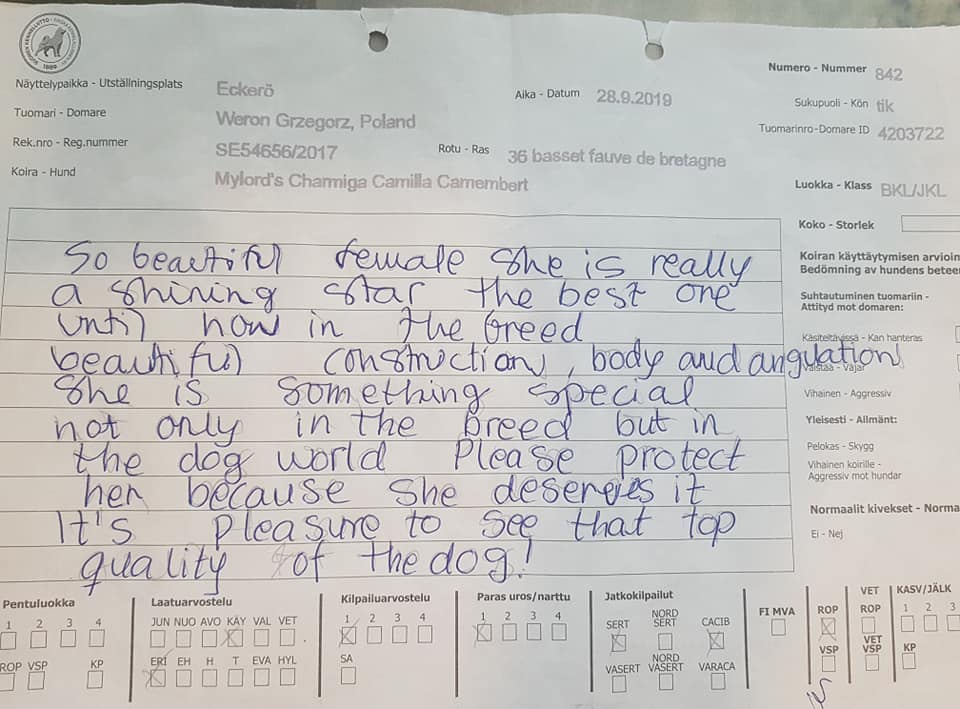 SUOMEN KENNELLIITTO - FINSKA KENNELKLUBBEN RY
1889
Näyttelypaikka - Utställningsplats Eckerö Aika - Datum 28.9.2019 Numero - Nummer 842
Tuomari - Domare Weron Grzegorz, Poland Sukupuoli - Kön tik
Rek.nro - Reg.nummer SE54656/2017 Rotu - Ras 36 basset fauve de bretagne Tuomarinro-Domare ID 4203722
Koira - Hund Mylord's Charmiga Camilla Camembert Luokka - Klass BKL/JKL
Koko - Storlek
Koiran käyttäytymisen arvioin
Bedömning av hundens betee
Suhtautuminen tuomariin -
Attityd mot domaren:
Käsiteltävissä - Kan hanteras
Väistää - Väjar
Vihainen - Aggressiv
Yleisesti - Allmänt:
Pelokas - Skygg
Vihainen koirille -
Aggressiv mot hundar
Normaalit kivekset - Norma
Ei - Nej
So beautiful female she is really
a shining star the best one
until now in the breed
beautiful construction, body and anguation
She is something special
not only in the breed but in
the dog world Please protect
her because she deserves it
It's pleasure to see that top
quality of the dog!
Pentuluokka
1 2 3 4
ROP VSP KP
Laatuarvostelu
JUN NUO AVO KÄY VAL VET
ERI EH H T EVA HYL
Kilpailuarvostelu
1 2 3 4
SA
Paras uros/narttu
1 2 3 4
Jatkokilpailut
SERT NORD SERT CACIB
VASERT NORD VASERT VARACA
FI MVA
ROP
VSP
VET
ROP
VET
VSP
KASV/JÄLK
1 2 3
KP